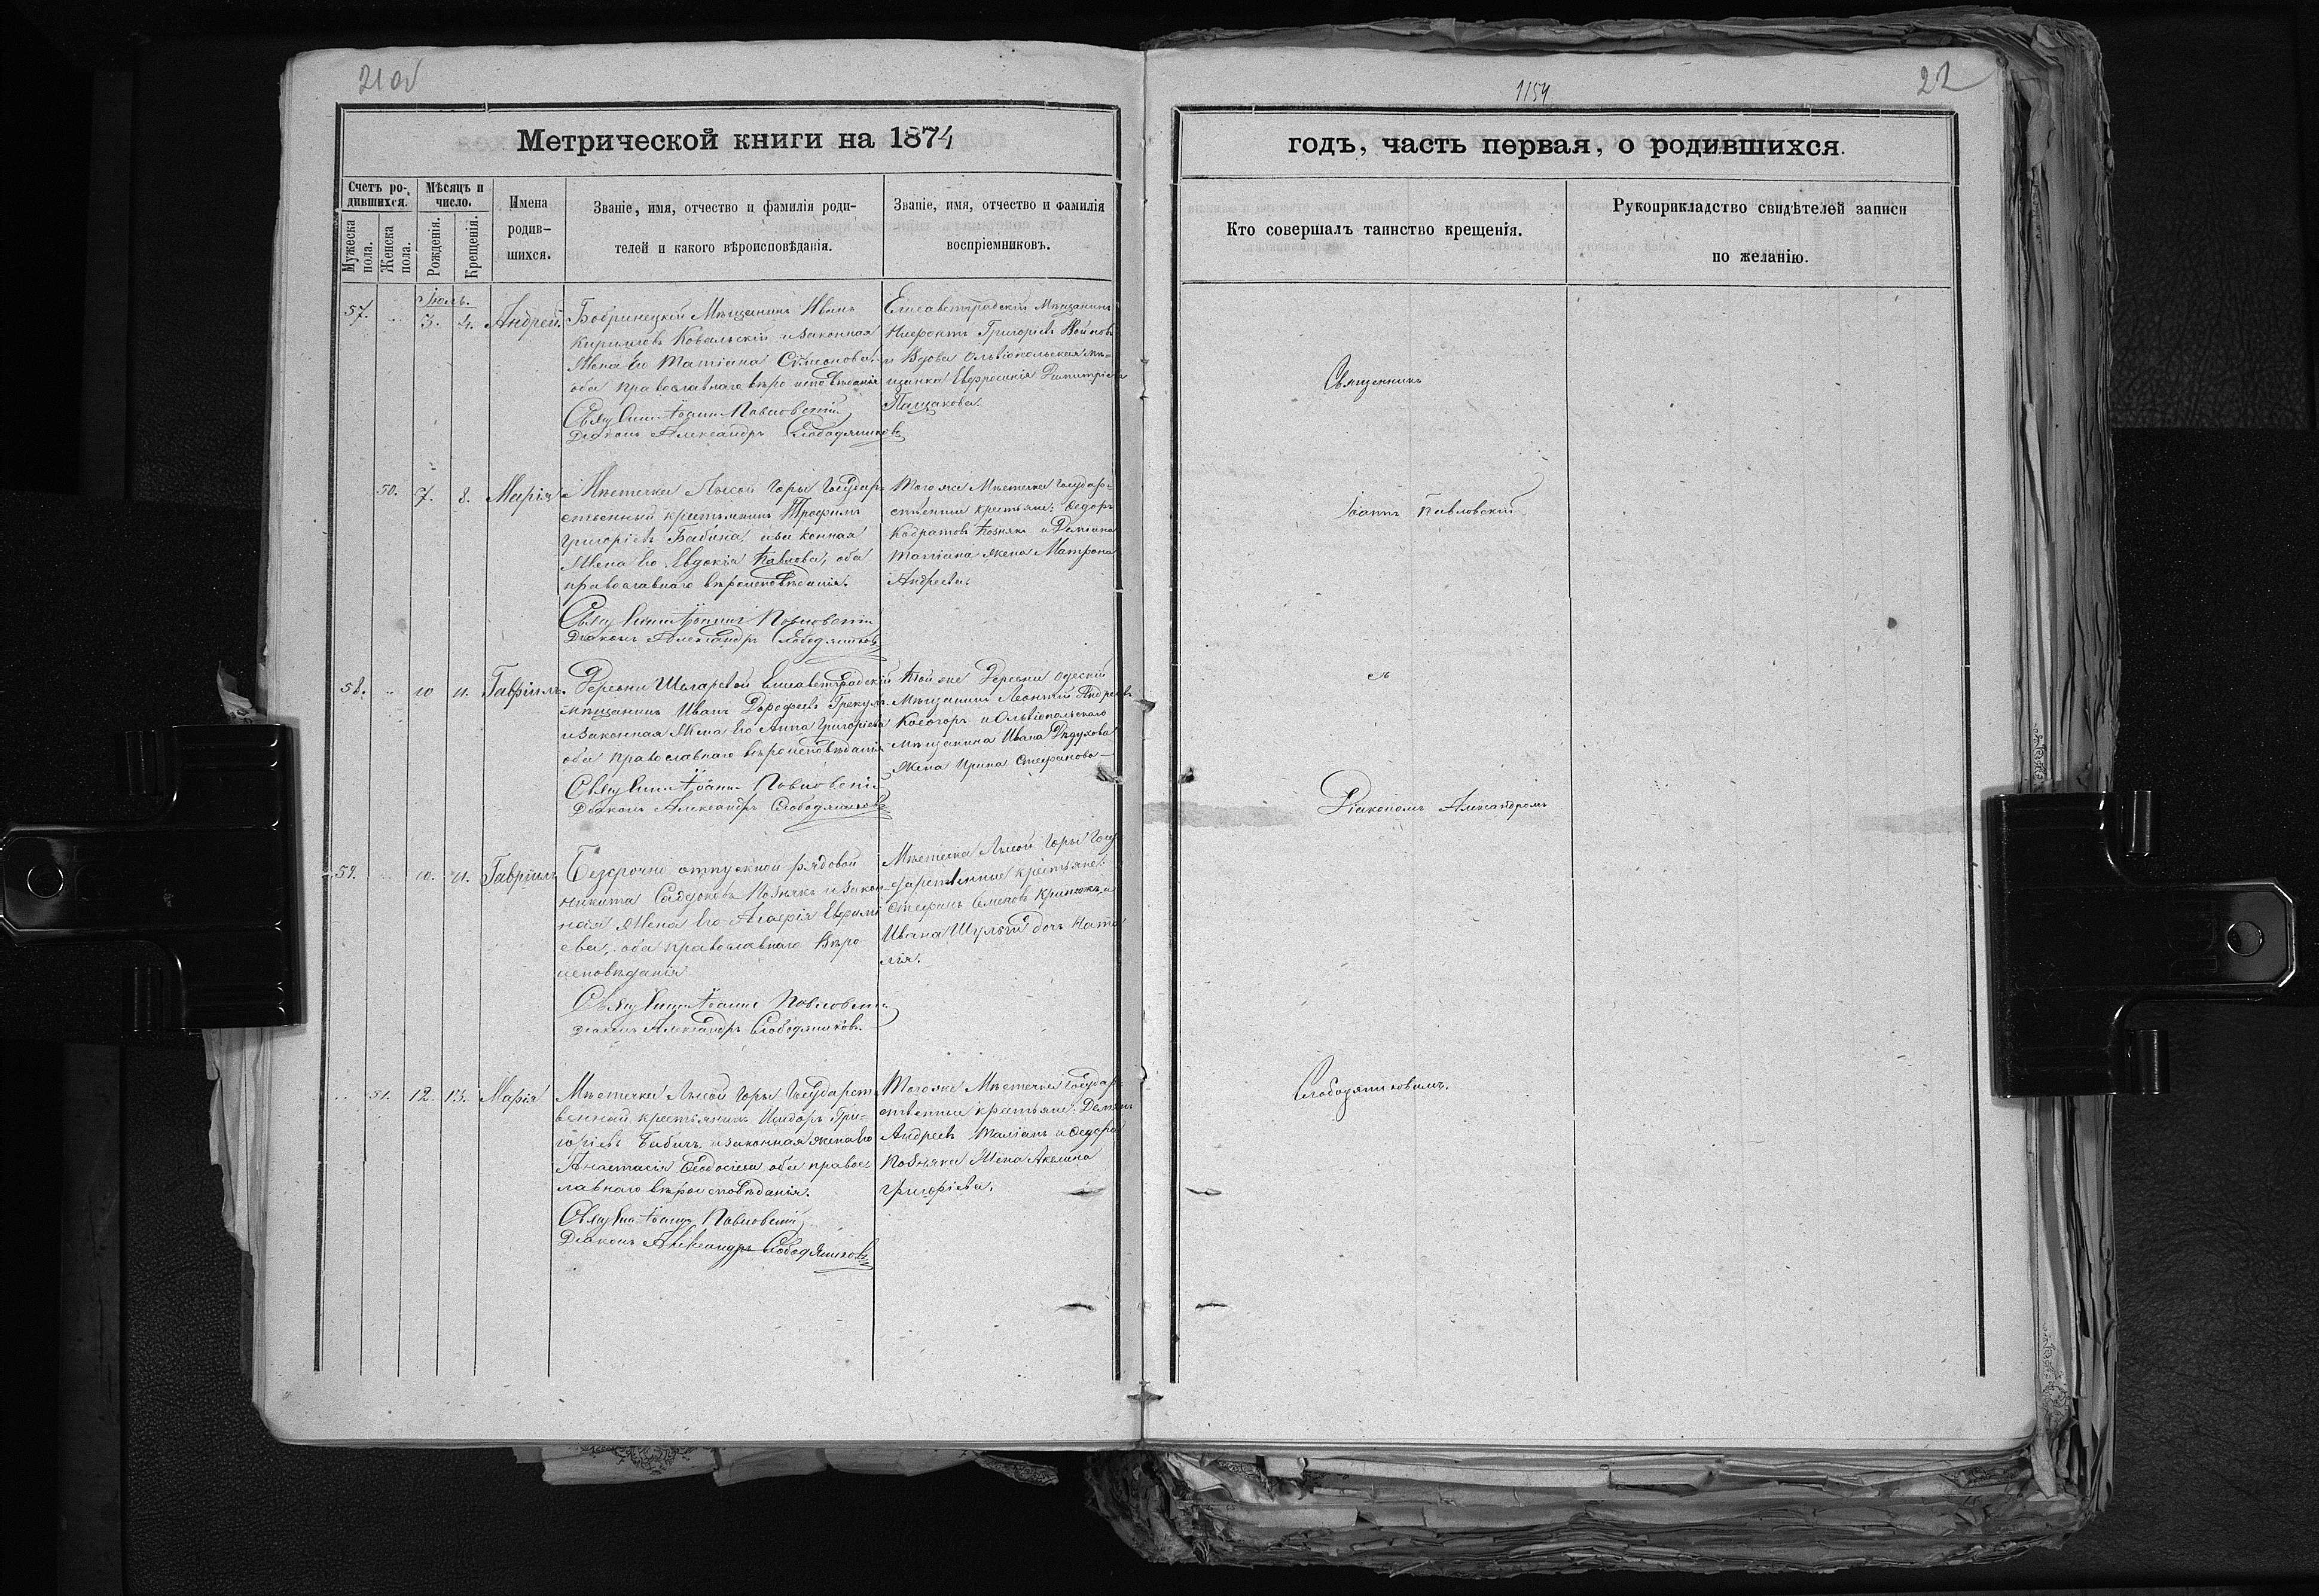 21 об
1154
22
Метрической книги на 1874
годъ, часть первая, о родившихся.
Счетъ ро-
дившихся.
Мужеска
пола.
Женска
пола.
Мѣсяцъ и
число.
Рожденія.
Крещенія.
Имена
родив-
шихся.
Званіе, имя, отчество и фамилія роди-
телей и какого вѣроисповѣданія.
Званіе, имя, отчество и фамилія
воспріемниковъ.
Кто совершалъ таинство крещенія.
Рукоприкладство свидѣтелей записи
по желанію.
Іюль.
57. 3. 4. Андрей.
Бобринецкій Мѣщанинъ Иванъ
Кириловъ Ковальскій и законная
Жена его Татіана Сѵмеонова,
оба православнаго вѣроисповѣданія
Свящ Іоаннъ Павловскій
Діаконъ Александръ Слободяниковъ
Елисаветградскій Мѣщанинъ
Григоріевъ Войновъ
и Вдова Ольвіопольская мѣ-
щанка Евфросинія Димитріева
Пащакова.
50. 7. 8. Марія
Мѣстечка Лысой Горы Государ-
ственный крестьянинъ Трофимъ
Григоріевъ Бабича и законная
Жена его Евдокія Павлова, оба
православнаго вѣроисповѣданія.
Свящ Іоаннъ Павловскій
Діаконъ Александръ Слободяниковъ
Того же Мѣстечка Государ-
ственные крестьяне: Федоръ
Кодратовъ Позняк и Деміана
Таліана жена Матрона
Андреева.
58. 10 11. Гавріилъ.
Деревни Шларевой Елисаветградскій
мѣщанинъ Иванъ Дорофеевъ Грекулъ
и законная Жена его Анна Григоріева
оба православнаго вѣроисповѣданія
Свящ Іоаннъ Павловскій
Діаконъ Александръ Слободяниковъ
Той же Деревни Одескій
Мѣщанинъ Леонтій Андреевъ
Косогоръ и Ольвіопольскаго
мѣщанина Ивана Дѣдухова
Жена Ирина Стефанова
59. 10. 11. Гавріилъ
Безсрочно отпускной рядовой
Никита Садоковъ Познякъ и закон-
ная Жена его Агафія Евфимі
ева, оба православнаго Вѣро
исповѣданія
Свящ Іоаннъ Павловскій
Діаконъ Александръ Слободяниковъ.
Мѣстечка Лысой Горы Госу
дарственные крестьяне:
Стефанъ Семеновъ и
Ивана Шульги дочь Ната
лія.
51. 12. 13. Марія
Мѣстечка Лысой Горы Государст
венный крестьянинъ Исидоръ Гри-
горіевъ Бабичъ и законная жена его
Анастасія Феодосіева оба правос
лавнаго вѣроисповѣданія.
Свящ Іоаннъ Павловскій
Діаконъ Александръ Слободяниковъ
Того же Мѣстечка Государ
ственные крестьяне: Деміанъ
Андреевъ Таліанъ и Федора
Позняка Жена Акелина
Григоріева.
Священникъ
Іоаннъ Павловскій
съ
Діакономъ Александромъ
Слободяниковымъ.